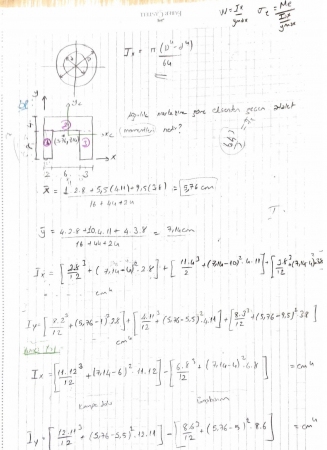 W = Ix / ymax   σe = Me / (Ix / ymax)
Ix = π (D⁴ - d⁴) / 64
y
x
2 6 3
Ağırlık merkezine göre eksenden geçen atalet
(momentini) nedir?
x̄ = 1.2.8 + 5,5(4.11) + 9,5(3.8) / 16 + 44 + 24 = 5,76 cm
ȳ = 4.2.8 + 10.4.11 + 4.3.8 / 16 + 44 + 24 = 7,14 cm
Ix = [2.8³/12 + (7,14-4)².2.8] + [11.4³/12 + (7,14-10)².4.11] + [3.8³/12 + (7,14-4)².3.8]
cm⁴
Iy = [8.2³/12 + (5,76-1)².2.8] + [4.11³/12 + (5,76-5,5)².4.11] + [8.3³/12 + (5,76-9,5)².3.8]
cm⁴
Ix = [11.12³/12 + (7,14-6)².11.12] - [6.8³/12 + (7,14-4)².6.8] = cm⁴
Iy = [12.11³/12 + (5,76-5,5)².12.11] - [8.6³/12 + (5,76-5)².8.6] = cm⁴